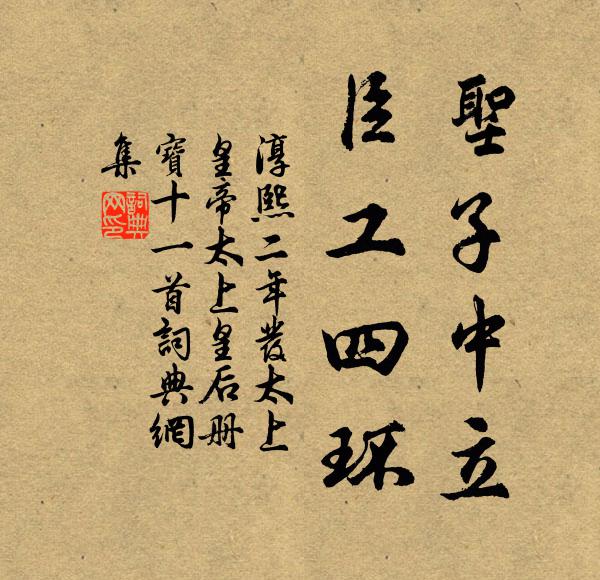 聖子中立
臣工四環
淳熙二年發太上
皇帝太上皇后册
寶十一首詞典網
集
詞典
网印